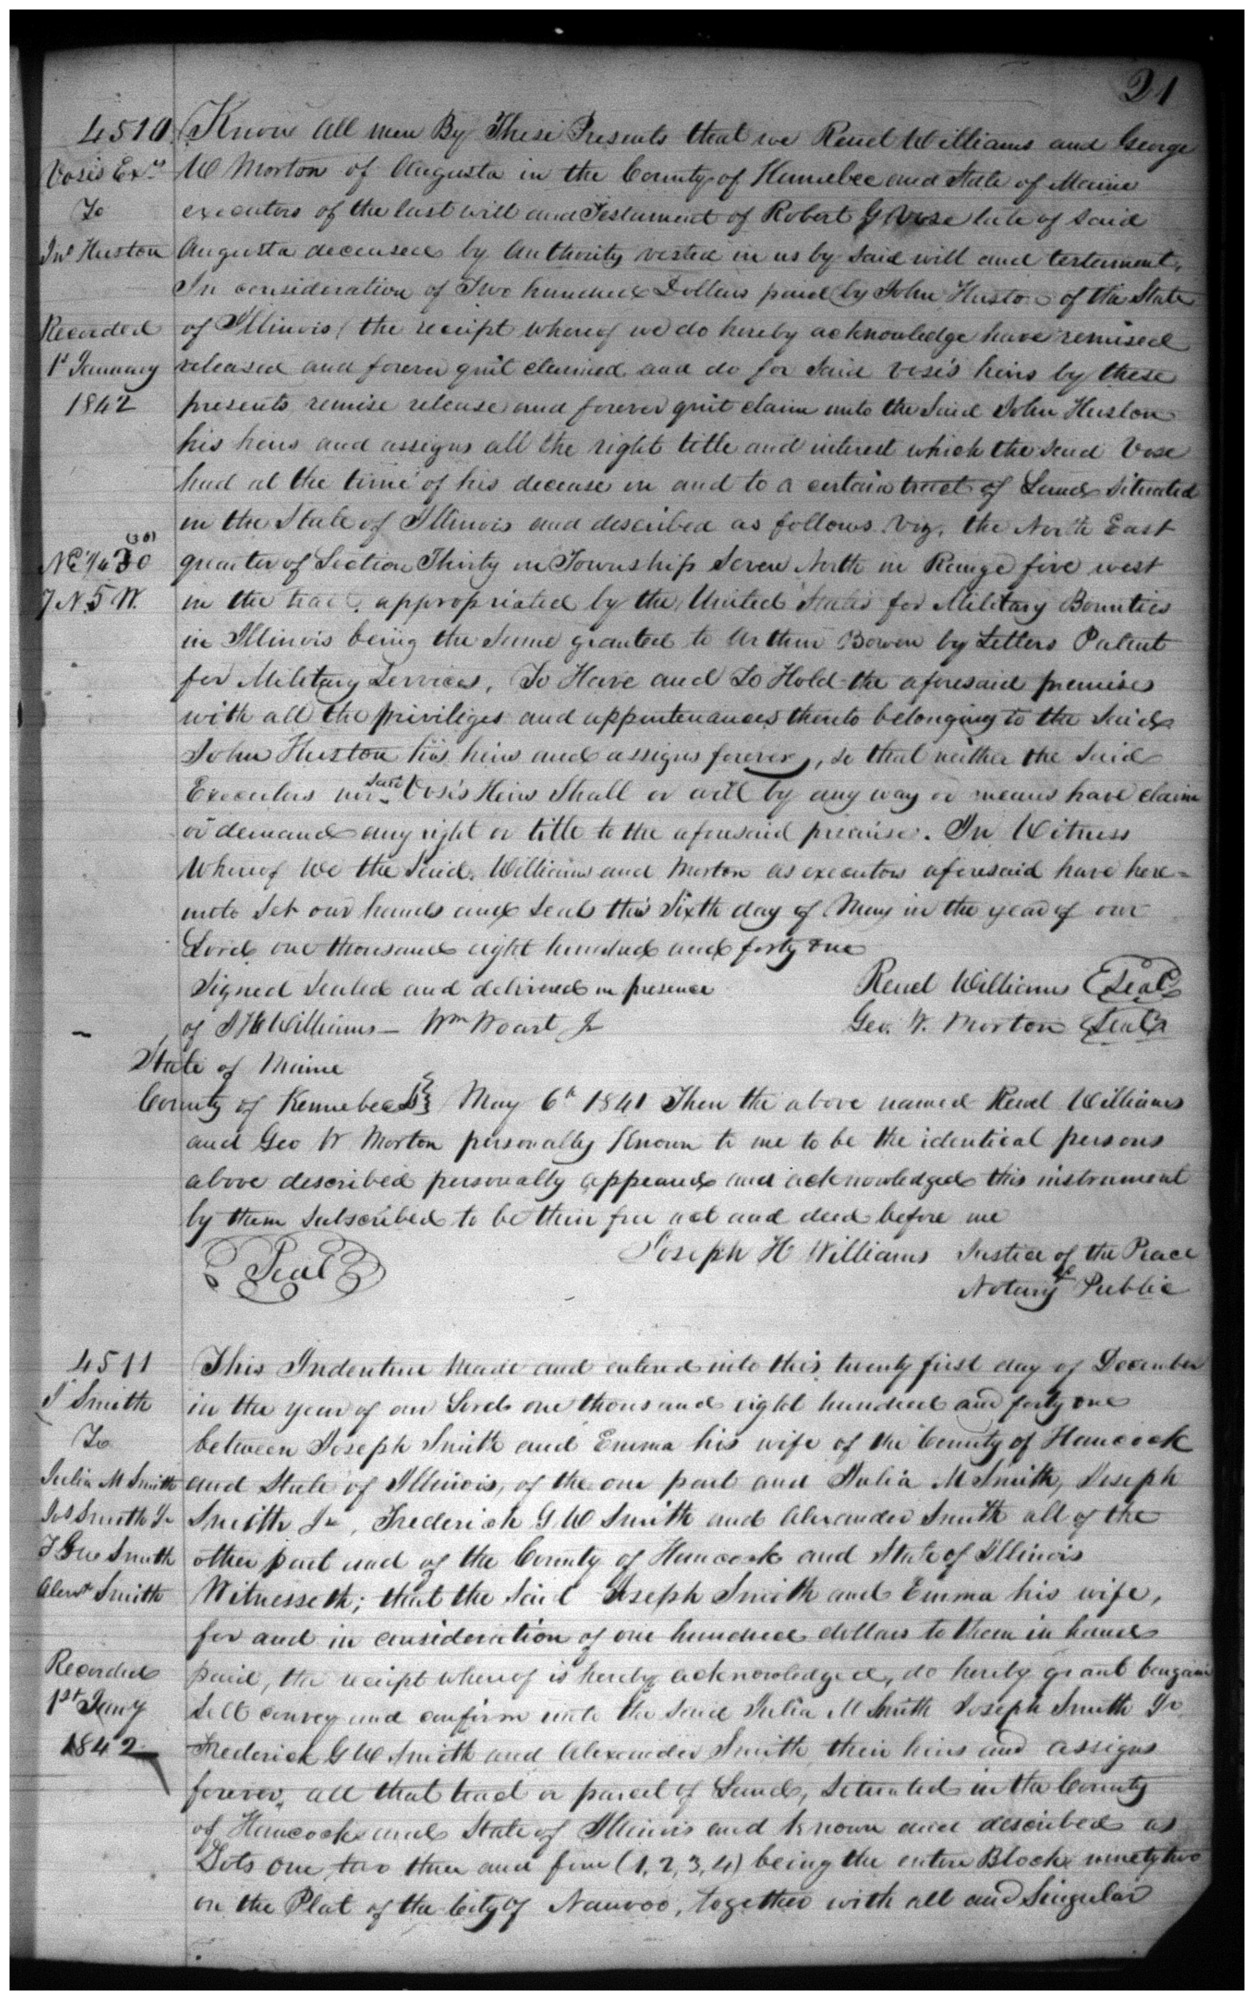 21
4510
Vose's Exrs
To
Jno Huston
Recorded
1st January
1842
Know All men By These Presents that we Reuel Williams and George
W Morton of Augusta in the County of Kennebec and State of Maine
executors of the last will and Testament of Robert G Vose late of said
Augusta deceased by authority vested in us by said will and testament,
In consideration of Two hundred Dollars paid by John Huston of the State
of Illinois (the receipt whereof we do hereby acknowledge have remised
released and forever quit claimed and do for said Vose's heirs by these
presents remise release and forever quit claim unto the said John Huston
his heirs and assigns all the right title and interest which the said Vose
had at the time of his decease in and to a certain tract of Land situated
in the State of Illinois and described as follows Viz, the North East
(30)
NE 1/4 30
7 N. 5 W.
quarter of Section Thirty in Township Seven North in Range five west
in the tract appropriated by the United States for Military Bounties
in Illinois being the same granted to Arthur Bowen by Letters Patent
for Military Services, To Have and To Hold the aforesaid premises
with all the priviliges and appurtenances thereto belonging to the said
John Huston his heirs and assigns forever, so that neither the said
Executors nor said Vose's Heirs Shall or will by any way or means have claim
or demand any right or title to the aforesaid premise. In Witness
Whereof We the said Williams and Morton as executors aforesaid have here=
unto set our hands and seals this Sixth day of May in the year of our
Lord one thousand eight hundred and forty one
Signed Sealed and delivered in presence Reuel Williams Seal
of J H Williams - Wm Woart Jr Geo. W. Morton Seal
State of Maine
County of Kennebec SS May 6th 1841 Then the above named Reuel Williams
and Geo W Morton personally Known to me to be the identical persons
above described personally appeared and acknowledged this instrument
by them subscribed to be their free act and deed before me
Seal Joseph H Williams Justice of the Peace
& Notary Public
4511
J Smith
To
Julia M Smith
Jos Smith Jr
F G W Smith
Alexr Smith
Recorded
1st Jany
1842
This Indenture made and entered into this twenty first day of December
in the year of our Lord one thousand eight hundred and forty one
between Joseph Smith and Emma his wife of the County of Hancock
and State of Illinois, of the one part and Julia M Smith, Joseph
Smith Jr, Frederick G W Smith and Alexander Smith all of the
other part and of the County of Hancock and State of Illinois
Witnesseth; that the said Joseph Smith and Emma his wife,
for and in consideration of one hundred dollars to them in hand
paid, the receipt whereof is hereby acknowledged, do hereby grant bargain
sell convey and confirm unto the said Julia M Smith Joseph Smith Jr.
Frederick G W Smith and Alexander Smith their heirs and assigns
forever, all that tract or parcel of Land, Situated in the County
of Hancock and State of Illinois and known and described as
Lots one two three and four (1, 2, 3, 4) being the entire Block ninety two
on the Plat of the City of Nauvoo, together with all and Singular